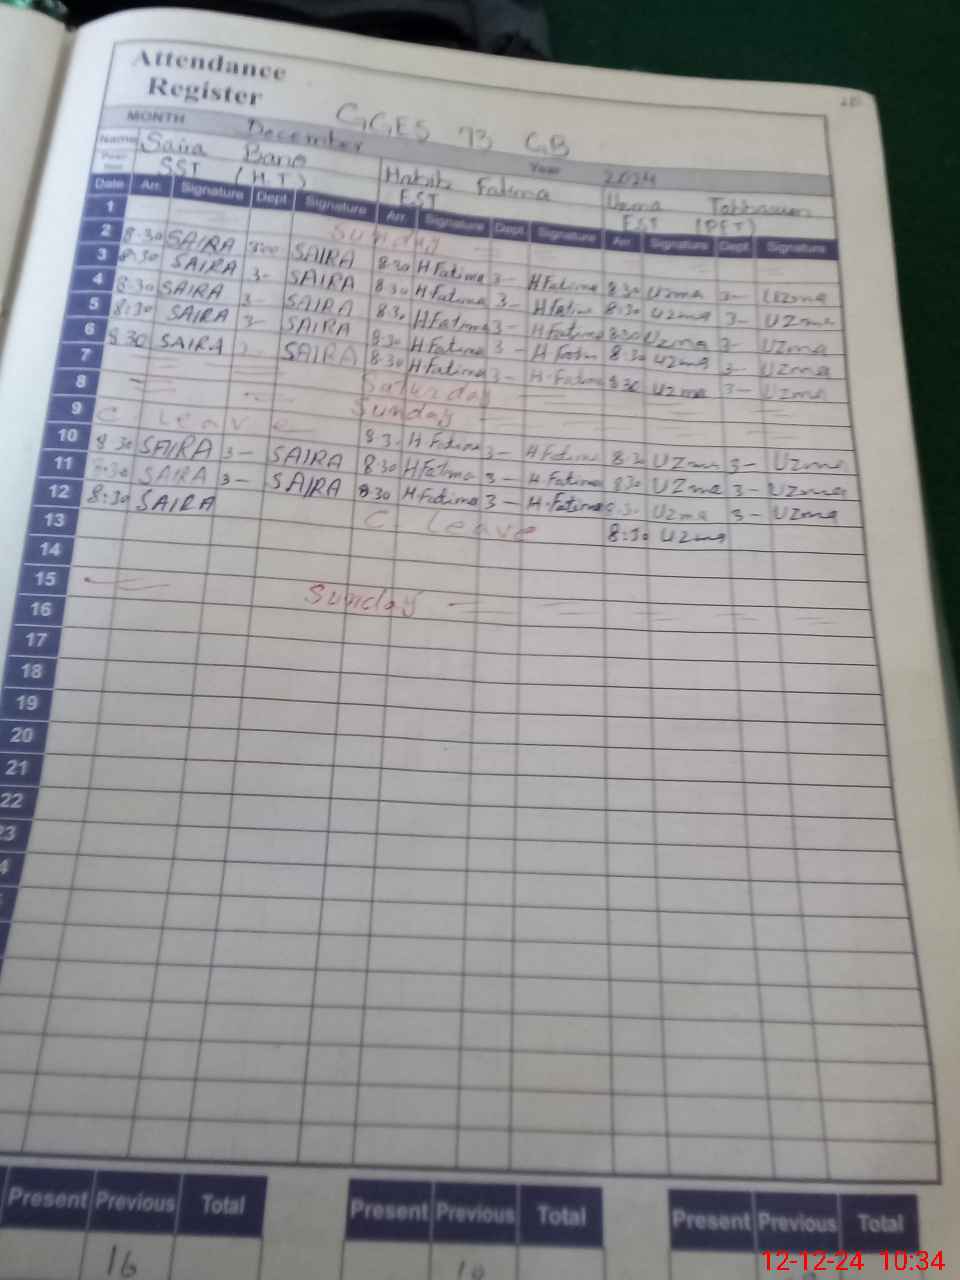 Attendance
Register
GGES 73 GB
MONTH December Year 2024
Name Saira Bano Fatima Uzma
SST (H.T) EST EST (PET)
Date Arr. Signature Dept Signature Arr. Signature Dept. Signature Arr. Signature Dept. Signature
1 Sunday
2 8:30 SAIRA SAIRA 8:30 H Fatima 3- H Fatima 8:30 Uzma 3- Uzma
3 8:30 SAIRA 3- SAIRA 8:30 H Fatima 3- H Fatima 8:30 Uzma 3- Uzma
4 8:30 SAIRA 3- SAIRA 8:30 H Fatima 3- H Fatima 8:30 Uzma 3- Uzma
5 8:30 SAIRA 3- SAIRA 8:30 H Fatima 3- H Fatim 8:30 Uzma 3- Uzma
6 8:30 SAIRA SAIRA 8:30 H Fatima 3- H.Fatima 8:30 Uzma 3- Uzma
7 Saturday
8 Sunday
9 C. Leave 8:30 H.Fatima 3- H Fatima 8:30 Uzma 3- Uzma
10 8:30 SAIRA 3- SAIRA 8:30 H Fatima 3- H.Fatima 8:30 Uzma 3- Uzma
11 8:30 SAIRA 3- SAIRA 8:30 H.Fatima 3- H.Fatima 8:30 Uzma 3- Uzma
12 8:30 SAIRA C. Leave 8:30 Uzma
13
14
15 Sunday
16
17
18
19
20
21
22
23
Present Previous Total Present Previous Total Present Previous Total
16
12-12-24 10:34